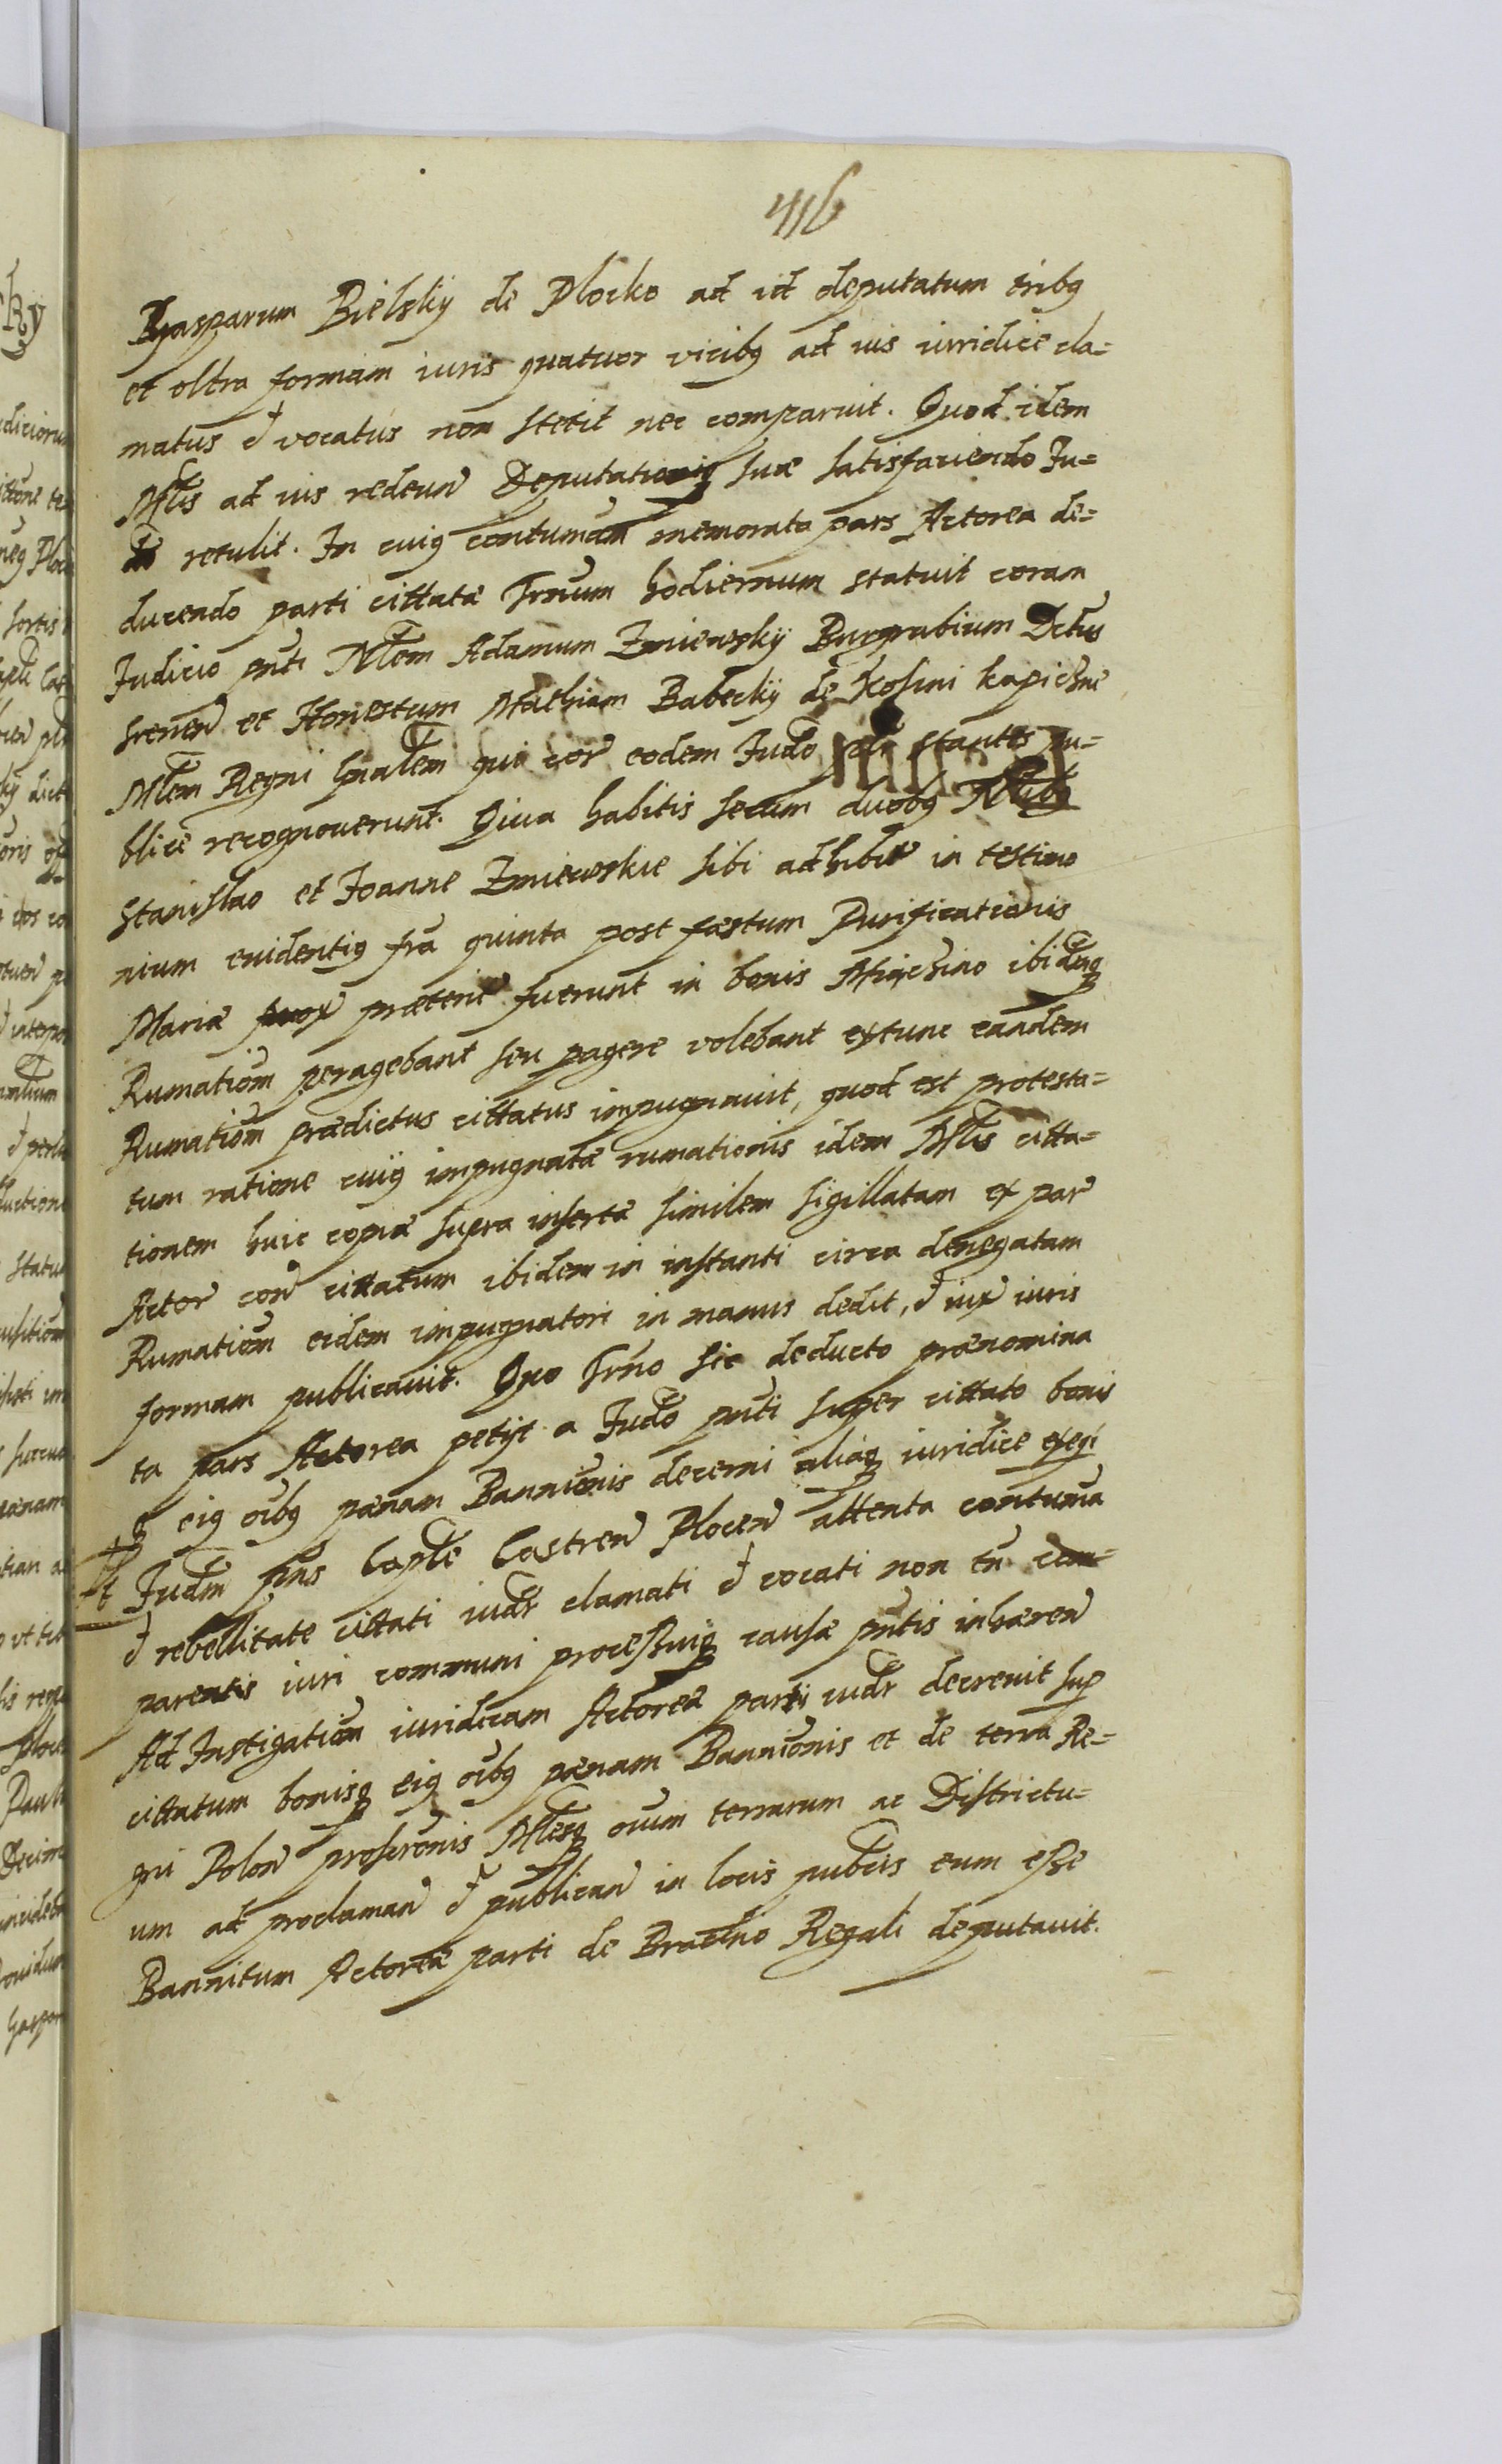 416
Gasparum Bielsky de Plocko ad id deputatum tribq
et vltra formam iuris quatuor vicibq ad ius iuridice cla=
matus et vocatus non stetit nec comparuit. Quod idem
Mlis ad ius redeun Deputationiq suæ satisfaciendo Ju=
retulit. In cuiq contumam memorata pars Actorea de=
ducendo parti cittatæ Trnum hodiernum statuit coram
Judicio pnti Nlem Adamum Zmiewsky Burgrabium
et Honestum Mathiam Babecky de
Mlem Regni gnalem qui cor eodem Judo stantes pu=
blice recognoverunt. Quia habitis secum duobq Nlibq
Stanislao et Joanne Zmiewskie sibi adhibit in testimo
nium euidentiq fra quinta post fæstum Purificationis
Mariæ prox præterit fuerunt in bonis ibidemq
Rumatiom peragebant seu pagere volebant extunc eandem
Rumatiom prædictus cittatus impugnauit, quod est protesta=
tum ratione cuiq impugnatæ rumationis idem Mlis citta=
tionem huic copiæ supra insertæ similem sigillatam ex par
Actor con cittatum ibidem in instanti circa denegatam
Rumatiom eidem impugnatori in manus dedit, et iux iuris
formam publicauit. Quo Trno sic deducto prænomina
ta pars Actorea petyt a Judo pnti super cittato bonis
q eiq oibq pænam Bannionis decerni aliaq iuridice exegi
Et Judm pns Caple Castren Plocen attenta contuma
et rebellitate cittati iudr clamati et vocati non tn com=
parentis iuri communi processuiq causæ pntis inhæren
Ad Instigatiom iuridicam Actoreæ parti iudr decrevit sup
cittatum bonisq eiq oibq pænam Bannionis et de terra Re=
gni Polon proscronis Mlesq oium terrarum ac Districtu=
um ad proclaman et publican in locis publcis eum esse
Bannitum Actoreæ parti de Brachio Regali deputauit.